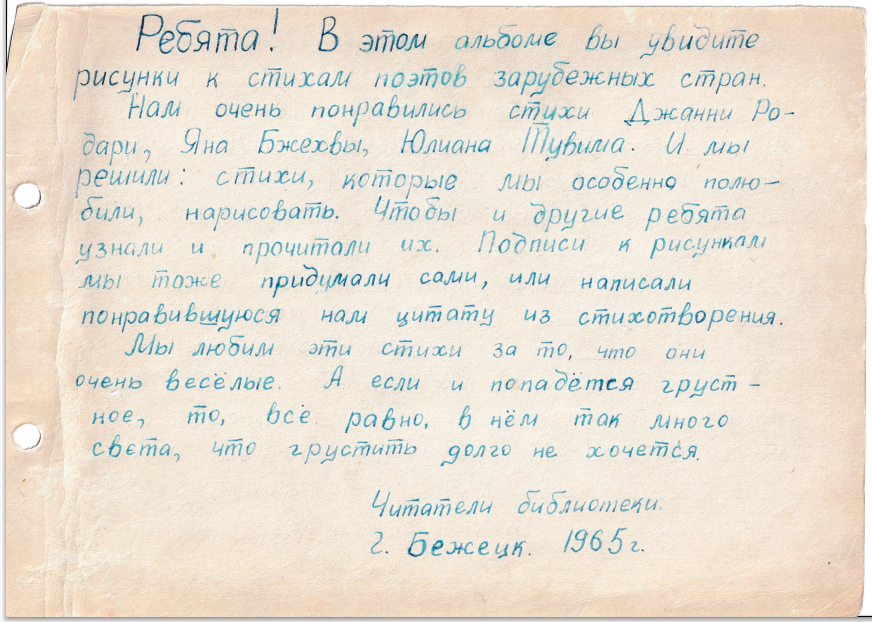 Ребята! В этом альбоме вы увидите
рисунки к стихам поэтов зарубежных стран.
Нам очень понравились стихи Джанни Ро-
дари, Яна Бжехвы, Юлиана Тувима. И мы
решили: стихи, которые мы особенно полю-
били, нарисовать. Чтобы и другие ребята
узнали и прочитали их. Подписи к рисункам
мы тоже придумали сами, или написали
понравившуюся нам цитату из стихотворения.
Мы любим эти стихи за то, что они
очень весёлые. А если и попадётся груст-
ное, то, всё равно, в нём так много
света, что грустить долго не хочется.
Читатели библиотеки.
г. Бежецк. 1965г.